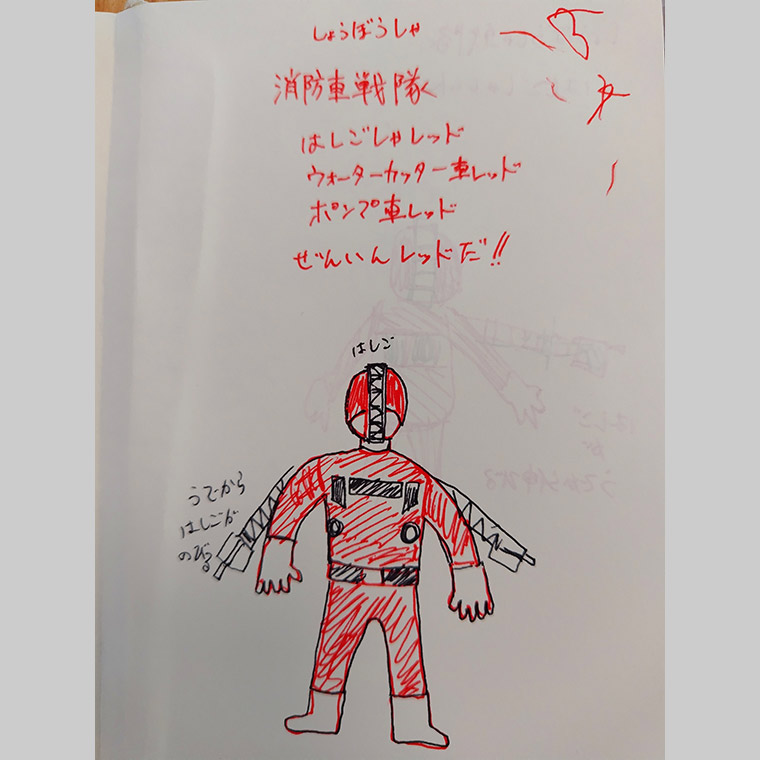 しょうぼうしゃ
消防車戦隊
はしごしゃレッド
ウォーターカッター車レッド
ポンプ車レッド
ぜんいんレッドだ!!
はしご
うでから
はしごが
のびる。
はしご
が
うでから伸びる